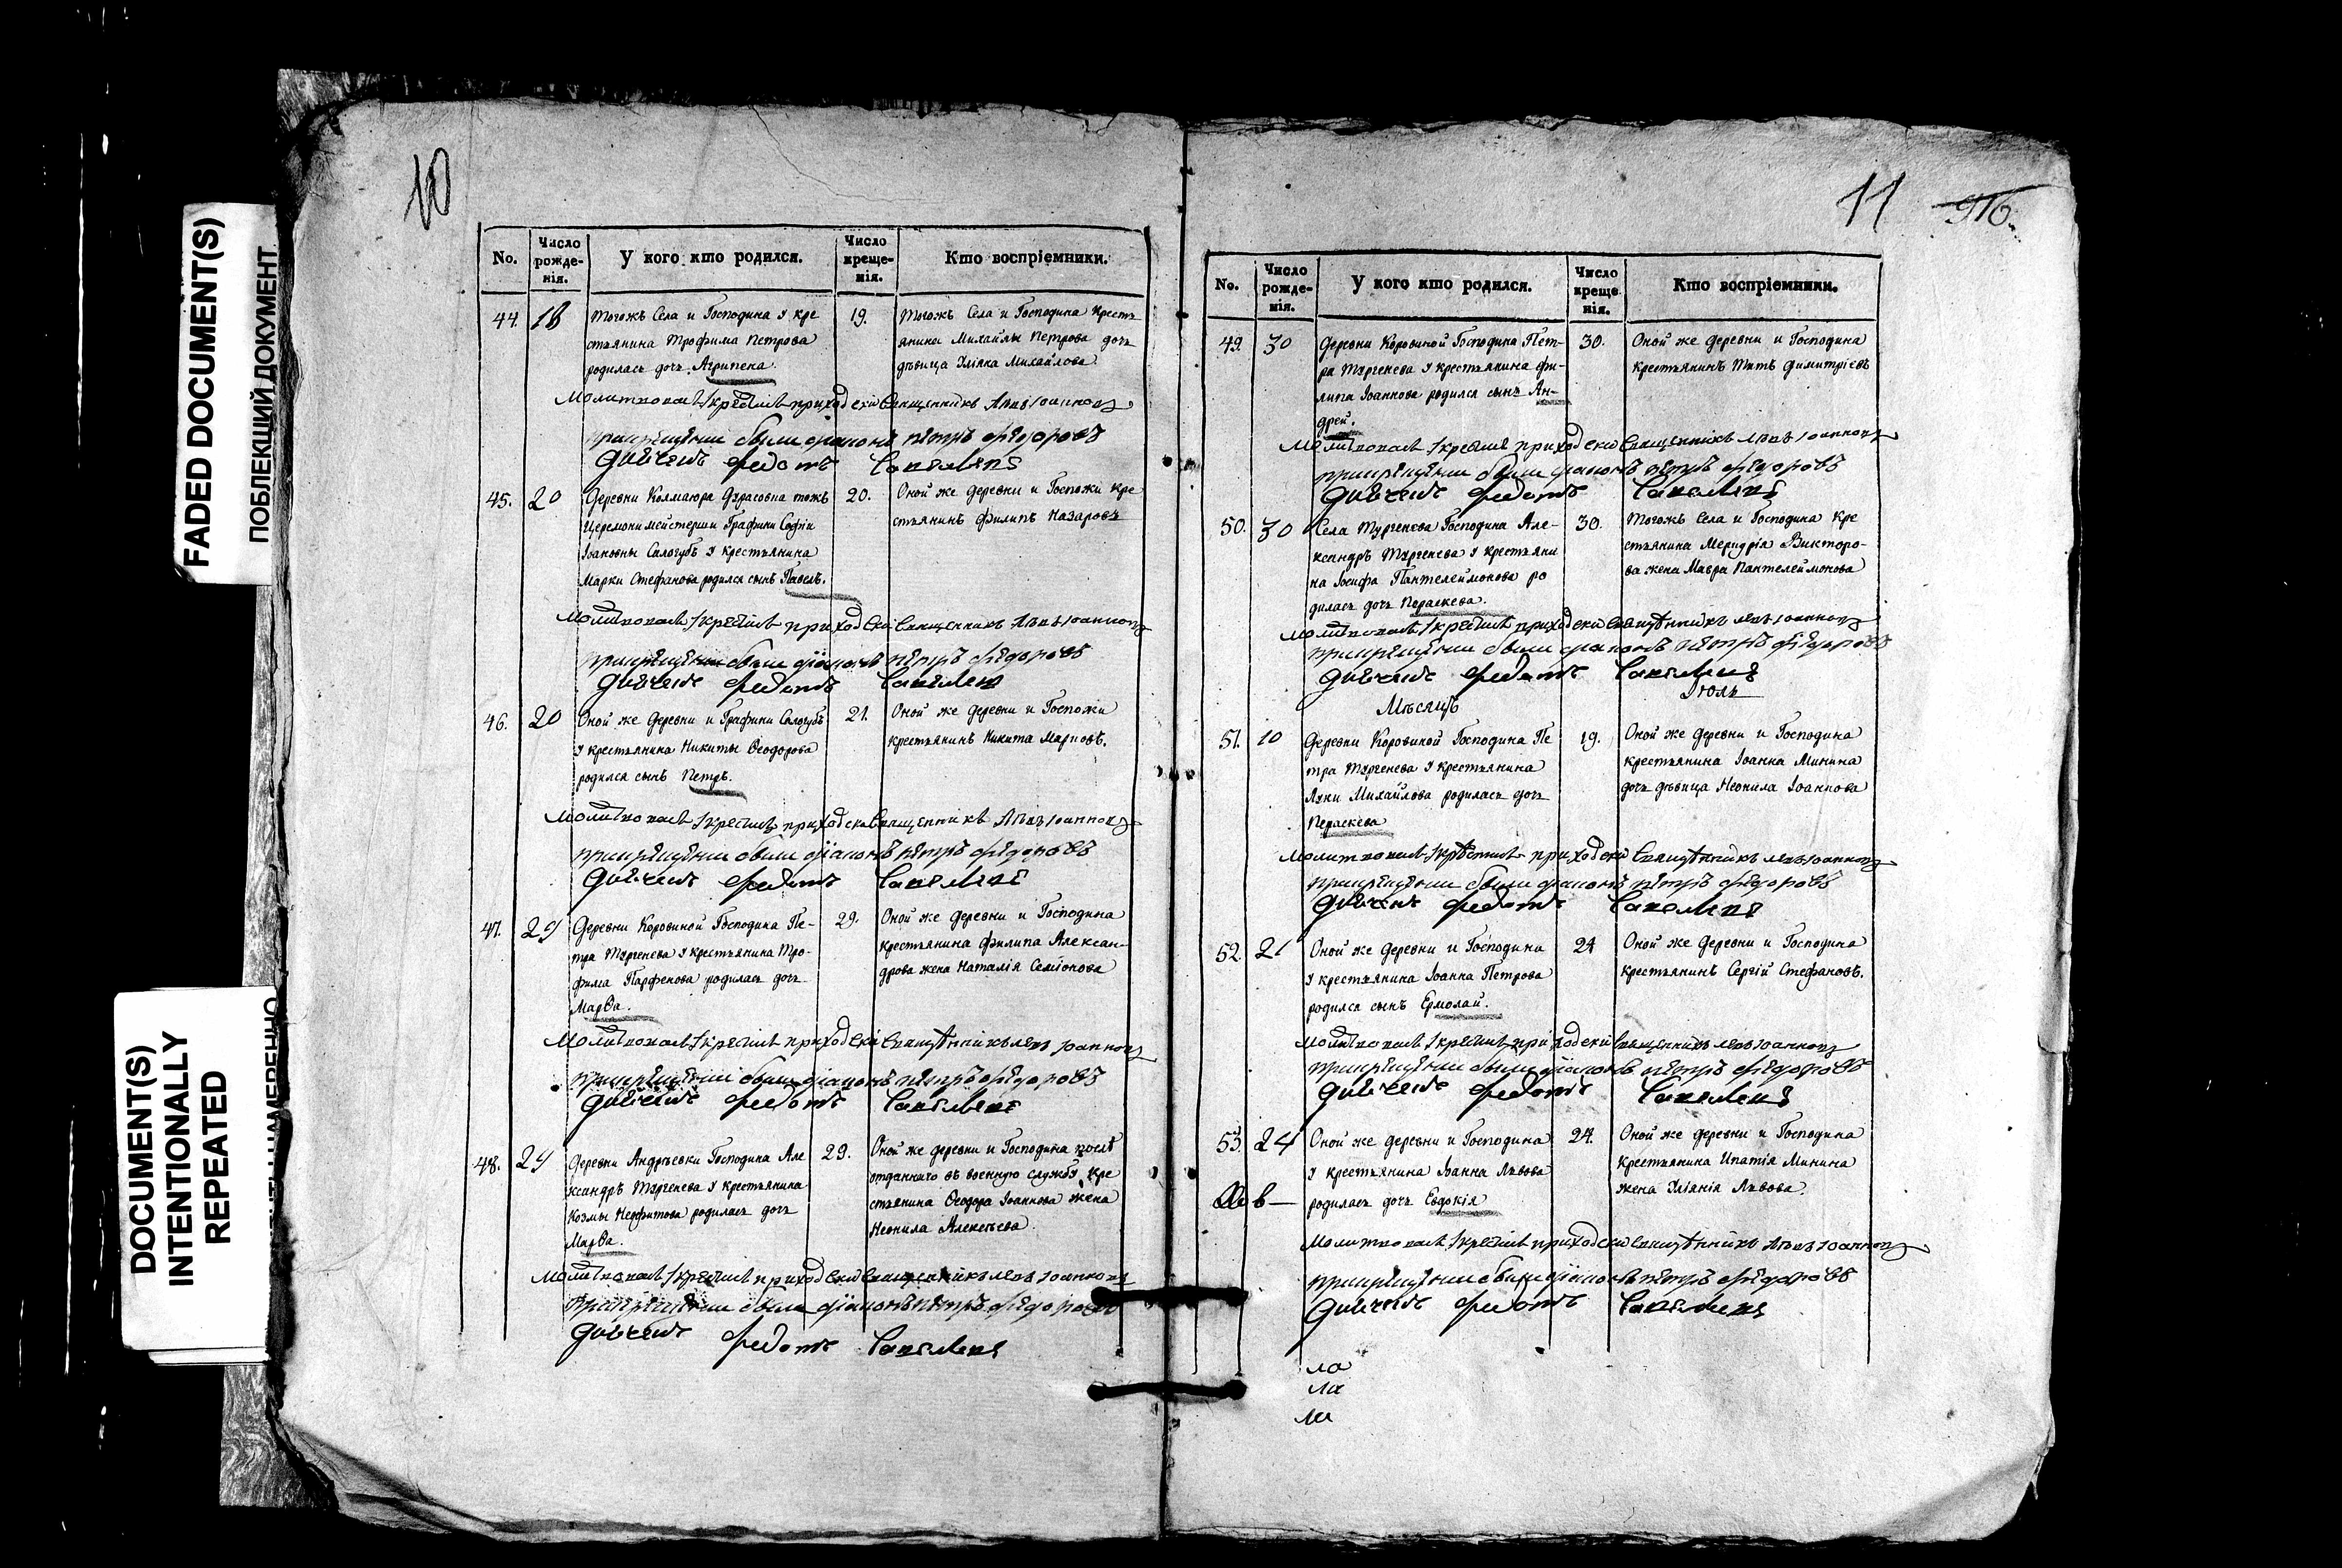 FADED DOCUMENT(S)
ПОБЛЕКШИЙ ДОКУМЕНТ
DOCUMENT(S)
INTENTIONALLY
REPEATED
10
No.
Число рожде-нія.
У кого кто родился.
Число креще-нія.
Кто воспріемники.
44.
18
тогожъ Села и Господина у кре
стьянина Трофима Петрова
родилась дочь Агрипена
19.
тогожъ Села и Господина крестъ
янина Михайлы Петрова дочь
дѣвица Михайлова
Молитвовалъ и крестилъ приходскій Священникъ Левъ Іоанновъ
при крещеніи были діаконъ петръ фёдоровъ
дьячекъ федотъ Савельевъ
45.
20
Деревни Дурасовка тожъ
Церемонимейстерши Графини Софіи
Іоановны Салогубъ у крестьянина
Марки Стефанова родился сынъ Павелъ.
20.
Оной же деревни и Госпожи кре
стьянинъ Филипъ Назаровъ
Молитвовалъ и крестилъ приходскій Священникъ Левъ Іоанновъ
при крещеніи были діаконъ петръ фёдоровъ
дьячекъ федотъ Савельевъ
46.
20
Оной же деревни и Графини Салогубъ
у крестьянина Никиты Ѳеодорова
родился сынъ Петръ.
21.
Оной же деревни и Госпожи
крестьянинъ Никита Марковъ.
Молитвовалъ и крестилъ приходскій Священникъ Левъ Іоанновъ
при крещеніи были діаконъ петръ фёдоровъ
дьячекъ федотъ Савельевъ
47.
29
Деревни Коровиной Господина Пе-
тра Тургенева у крестьянина Тро-
фима Парфенова родилась дочь
Марѳа.
29.
Оной же деревни и Господина
крестьянина Филипа Алексан-
дрова жена Наталія Семіонова
Молитвовалъ и крестилъ приходскій Священникъ Левъ Іоанновъ
при крещеніи были діаконъ петръ фёдоровъ
дьячекъ федотъ Савельевъ
48.
29
Деревни Андрѣевки Господина Але
ксандръ Тургенева у крестьянина
Козмы Неофитова родилась дочь
Марѳа.
29.
Оной же деревни и Господина послѣ
отданного въ военную службу кре
стьянина Ѳеодора Іоаннова жена
Неонила Алексѣева.
Молитвовалъ и крестилъ приходскій Священникъ Левъ Іоанновъ
при крещеніи были діаконъ петръ фёдоровъ
дьячекъ федотъ Савельевъ
11
No.
Число рожде-нія.
У кого кто родился.
Число креще нія.
Кто воспріемники.
49.
30
Деревни Коровиной Господина Пет-
ра Тургенева у крестьянина Фи-
липа Іоаннова родился сынъ Ан-
дрей.
30.
Оной же деревни и Господина
крестьянинъ Титъ Димитріевъ
Молитвовалъ и крестилъ приходскій Священникъ Левъ Іоанновъ
при крещеніи были діаконъ петръ фёдоровъ
дьячекъ федотъ Савельевъ
50.
30
Села Тургенева Господина Але-
ксандръ Тургенева у крестьяни
на Іосифа Пантелеймонова ро
дилась дочь Параскева.
30.
Тогожъ Села и Господина кре
стьянина Викторо-
ва жена Мавра Пантелеймонова
Молитвовалъ и крестилъ приходскій Священникъ Левъ Іоанновъ
при крещеніи были діаконъ петръ фёдоровъ
дьячекъ федотъ Савельевъ
Мѣсяцъ Іюль
51.
10
Деревни Коровиной Господина Пе
тра Тургенева у крестьянина
Луки Михайлова родилась дочь
Параскева
19.
Оной же деревни и Господина
крестьянина Іоанна Минина
дочь дѣвица Неонила Іоаннова
Молитвовалъ и крестилъ приходскій Священникъ Левъ Іоанновъ
при крещеніи были діаконъ петръ фёдоровъ
дьячекъ федотъ Савельевъ
52.
21
Оной же деревни и Господина
у крестьянина Іоанна Петрова
родился сынъ Ермолай.
24
Оной же деревни и Господина
крестьянинъ Сергій Стефановъ.
Молитвовалъ и крестилъ приходскій Священникъ Левъ Іоанновъ
при крещеніи были діаконъ петръ фёдоровъ
дьячекъ федотъ Савельевъ
53.
24
Оной же деревни и Господина
у крестьянина Іоанна Львова
родилась дочь Евдокія
24.
Оной же деревни и Господина
крестьянина Ипатія Минина
жена Уліянія Львова.
Молитвовалъ и крестилъ приходскій Священникъ Левъ Іоанновъ
при крещеніи были діаконъ петръ фёдоровъ
дьячекъ федотъ Савельевъ
ла
ла
ла